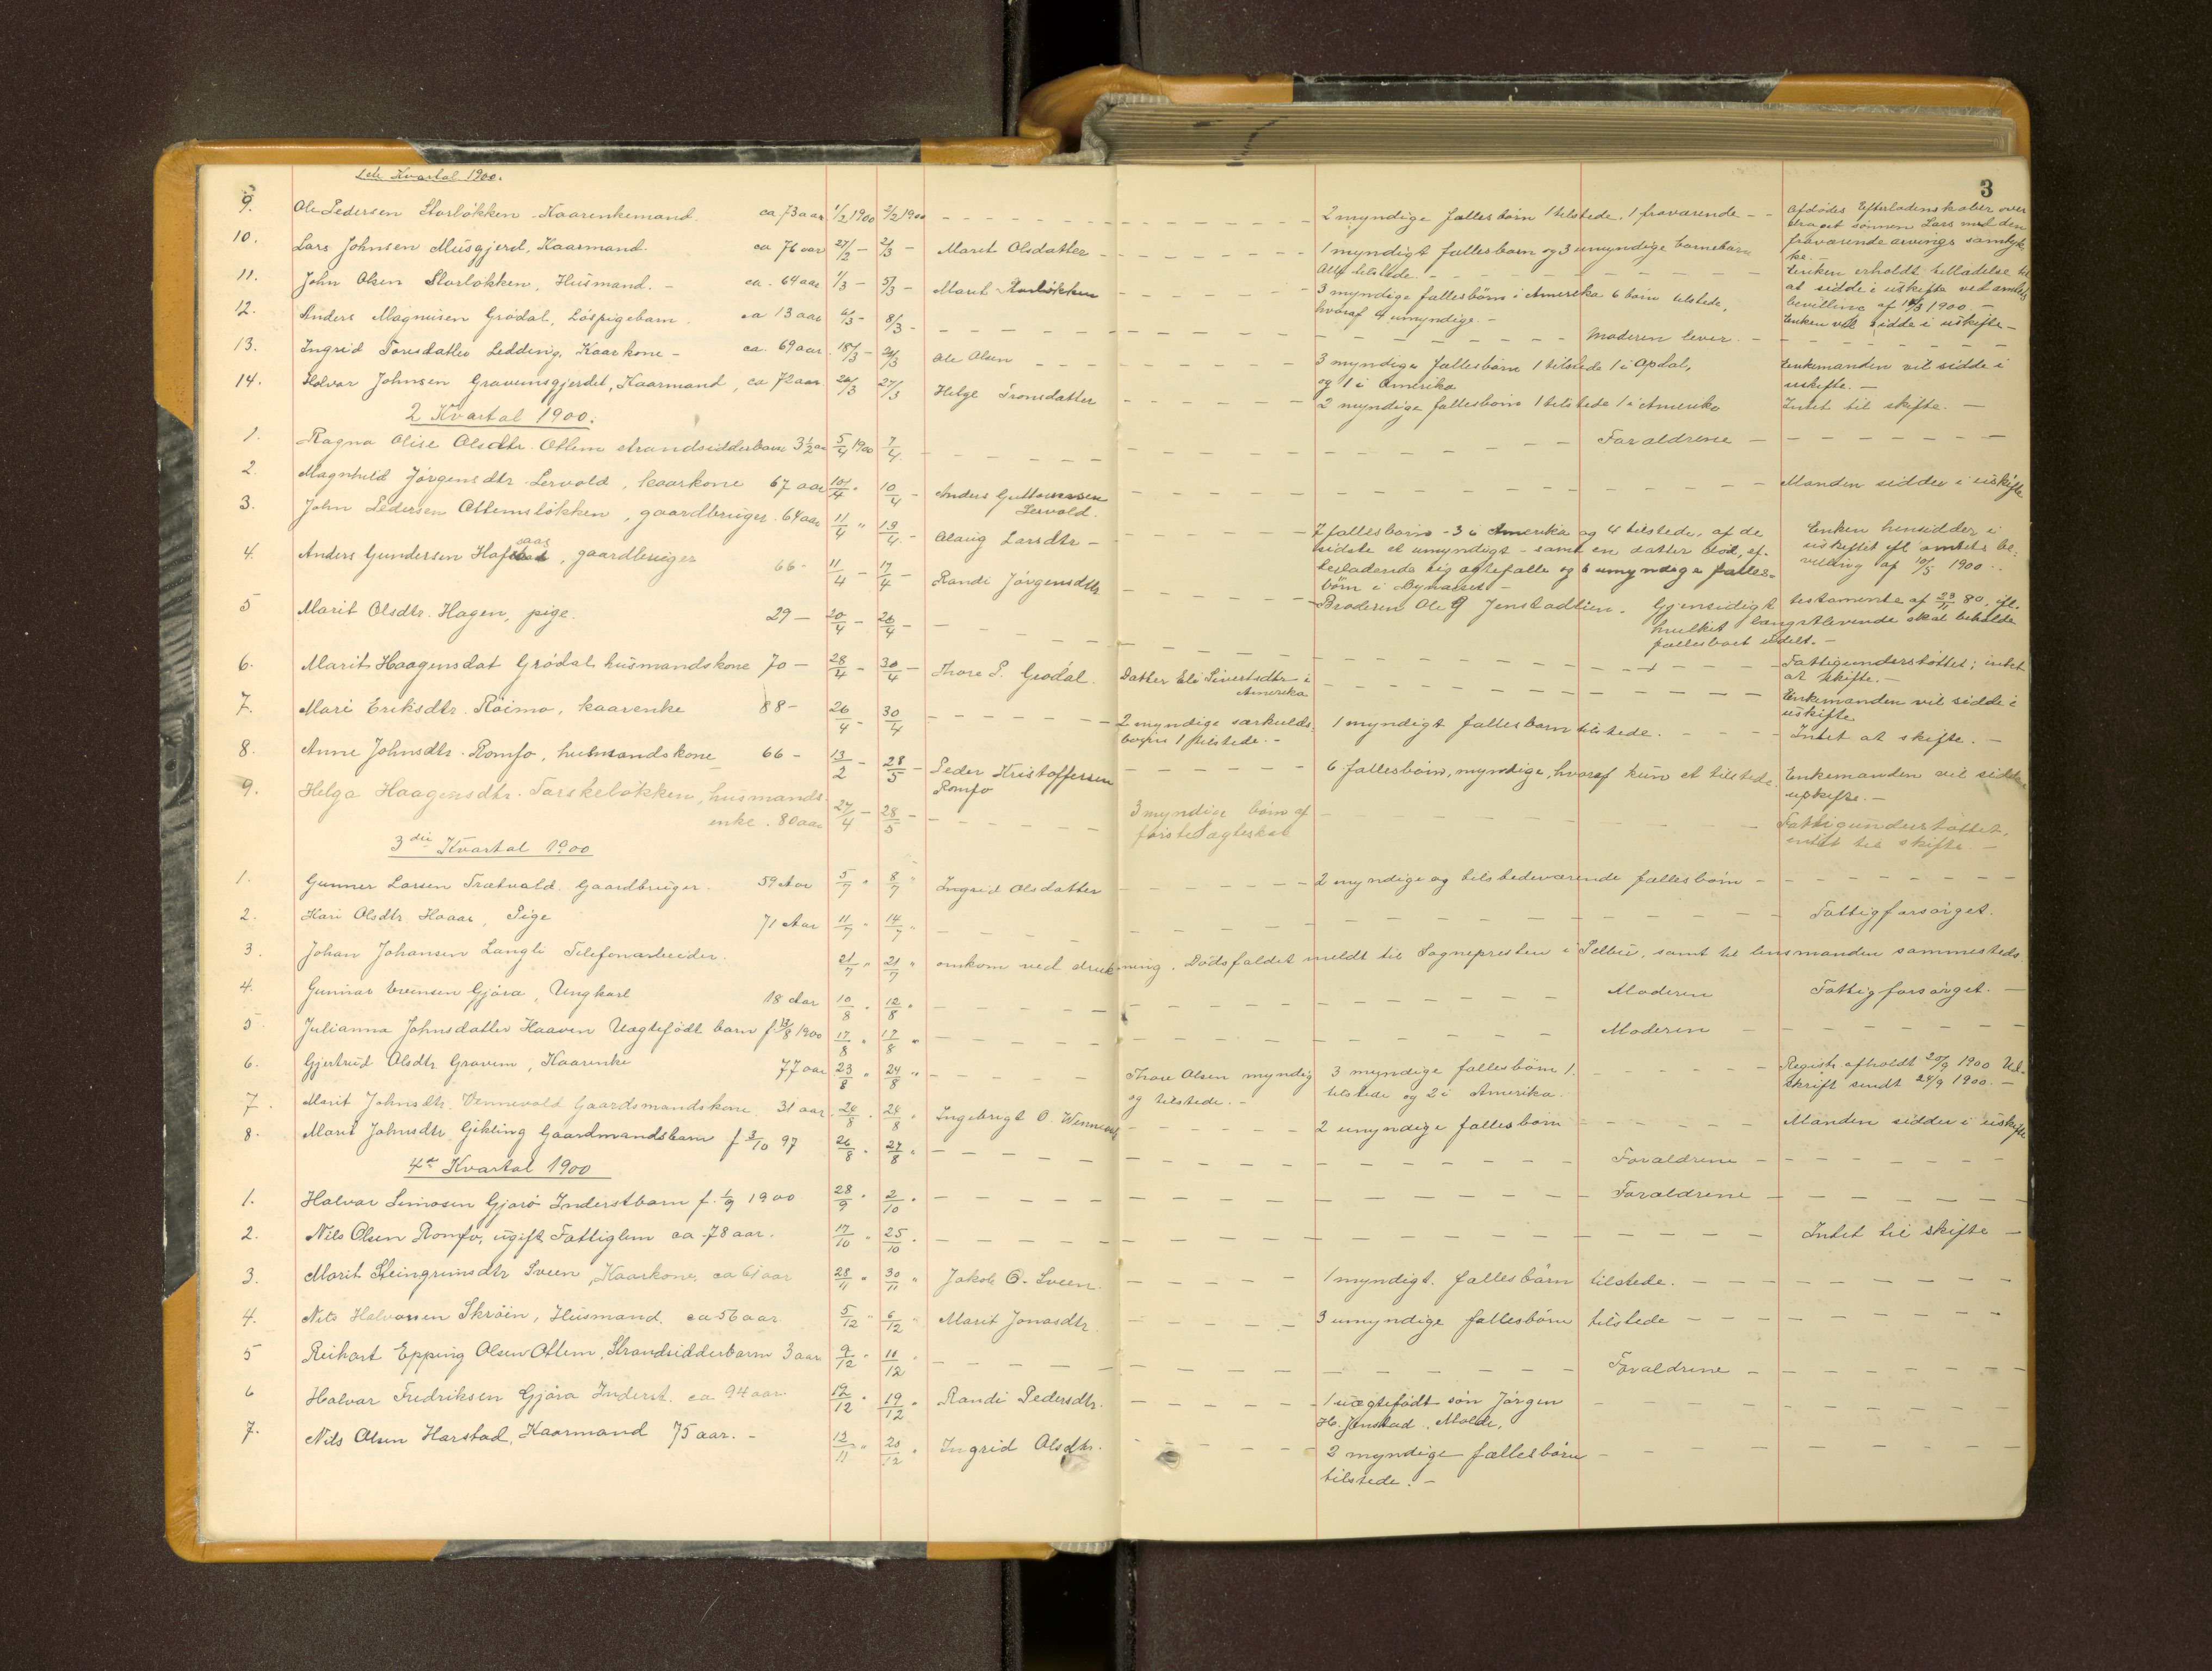 1ste Kvartal 1900.
3
9. Ole Pedersen Storløkken Kaarenkemand. ca 73 aar 1/2 1900 2/2 1900 2 myndige fællesbørn 1 tilstede, 1 fraværende Afdødes Efterladenskaber over
draget sønnen Lars med den
fraværende arvings samtyk
ke.
10. Lars Johnsen Musgjerd, Kaarmand. ca 76 aar 27/2 2/3 Marit Olsdatter 1 myndigt fællesbarn og 3 umyndige barnebørn
alle tilstede. Enken erholdt tilladelse til
at sidde i uskifte ved amtets
bevilling af 14/3 1900
11. John Olsen Storløkken, Husmand. ca. 64 aar 1/3 5/3 Marit Storløkken 3 myndige fællesbørn i Amerika 6 børn tilstede,
hvoraf 4 umyndige. Enken vil sidde i uskifte
12. Anders Magnusen Grødal, Løspigebarn. ca 13 aar 6/3 8/3 Moderen lever.
13. Ingrid Toresdatter Ledding, Kaarkone ca. 69 aar. 18/3 20/3 Ole Olsen 3 myndige fællesbørn 1 tilstede 1 i Opdal,
og 1 i Amerika Enkemanden vil sidde i
uskifte.
14. Halvar Johnsen Gravemsgjerdet, Kaarmand, ca 72 aar 26/3 27/3 Helge Tronsdatter 2 myndige fællesbørn 1 tilstede 1 i Amerika Intet til skifte.
2 Kvartal 1900.
1. Ragna Olise Olsdtr. Ottem strandsidderbarn 3 1/2 aar 5/4 1900 7/4 Forældrene
2. Magnhild Jørgensdtr Lervold, kaarkone 67 aar 10/4 10/4 Anders Guttormsen
Lervold. Manden sidder i uskifte
3. John Pedersen Ottemsløkken, gaardbruger. 64 aar 11/4 " 19/4 Olaug Larsdtr 7 fællesbørn - 3 i Amerika og 4 tilstede, af de
sidste et umyndigt - samt en datter død, ef-
terladende sig ægtefælle og 6 umyndige fælles-
børn i Bynæsset Enken hensidder i
uskiftet ifl amtets be-
villing af 10/5 1900.
4. Anders Gundersen Hafsaas, gaardbruger 66 11/4 17/4 Randi Jørgensdtr Broderen Ole G Jenstadlien. Gjensidigt testamente af 23/11 80, ifl.
hvilket længstlevende skal beholde
fællesboet udelt.
5 Marit Olsdtr. Hagen, pige. 29 20/4 26/4 Fattigunderstøttet; intet
at skifte.
6. Marit Haagensdat Grødal husmandskone 70 28/4 30/4 Thore S. Grødal. Datter Eli Sivertsdtr i
Amerika Enkemanden vil sidde i
uskifte
7. Mari Eriksdtr. Röimo, kaarenke 88 26/4 30/4 2 myndige særkulds
børn 1 tilstede. 1 myndigt fællesbarn tilstede. Intet at skifte.
8. Anne Johnsdtr. Romfo, husmandskone 66 13/2 28/5 Peder Kristoffersen
Romfo 6 fællesbørn, myndige, hvoraf kun et tilstede. Enkemanden vil sidde
uskifte.
9. Helga Haagensdtr. Torskeløkken, husmands-
enke. 80 aar 27/4 28/5 3 myndige børn af
første ægteskab Fattigunderstøttet,
intet til skifte.
3die Kvartal 1900
1. Gunner Larsen Trætvald. Gaardbruger. 59 Aar 5/7 " 8/7 " Ingrid Olsdatter 2 myndige og tilstedeværende fællesbørn
2. Kari Olsdtr. Hoaas, Pige 71 Aar 11/7 " 14/7 " Fattigforsørget.
3. Johan Johansen Langli Telefonarbeider. 21/7 " 21/7 " omkom ved drukning. Dødsfaldet meldt til Sognepresten i Selbu, samt til lensmanden sammesteds
4. Gunnar Evensen Gjøra, Ungkarl 18 Aar 10/8 " 12/8 " Moderen Fattigforsørget.
5 Julianna Johnsdatter Haaven Uægtefødt barn f. 13/8 1900 17/8 17/8 " Moderen
6. Gjertrud Olsdtr Gravem, Kaarenke 77 aar 23/8 " 24/8 " Thore Olsen myndig
og tilstede. 3 myndige fællesbørn 1
tilstede og 2 i Amerika. Registr. afholdt 20/9 1900 Ud-
skrift sendt 24/9 1900.
7. Marit Johnsdtr. Vennevold Gaardmandskone. 31 aar. 24/8 " 24/8 " Ingebrigt O. Wennevold 2 umyndige fællesbørn Manden sidder i uskifte
8. Marit Johnsdtr Gikling Gaardmandsbarn f 3/10 97 26/8 " 27/8 " Forældrene
4de Kvartal 1900
1. Halvar Simosen Gjørø Inderstbarn f. 1/9 1900 28/9 " 2/10 " Forældrene
2. Nils Olsen Romfo, ugift Fattiglem ca. 78 aar. 17/10 " 25/10 " Intet til skifte
3. Marit Steingrimsdtr Sveen, Kaarkone, ca 61 aar 28/11 " 30/11 " Jakob O. Sveen. 1 myndigt. fællesbørn tilstede.
4. Nils Halvorsen Skrøin, Husmand. ca 56 aar 5/12 " 6/12 " Marit Jonasdtr. 3 umyndige fællesbørn tilstede
5 Reihart Epping Olsen Ottem, Strandsidderbarn 3 aar 9/12 " 11/12 Forældrene
6 Halvar Fredriksen Gjøra Inderst. ca 94 aar. 12/12 " 19/12 " Randi Pedersdtr. 1 uægtefødt søn Jørgen
H. Jenstad, Molde,
7. Nils Olsen Harstad, Kaarmand 75 aar. 12/11 " 20/12 " Ingrid Olsdtr. 2 myndige fællesbørn
tilstede.